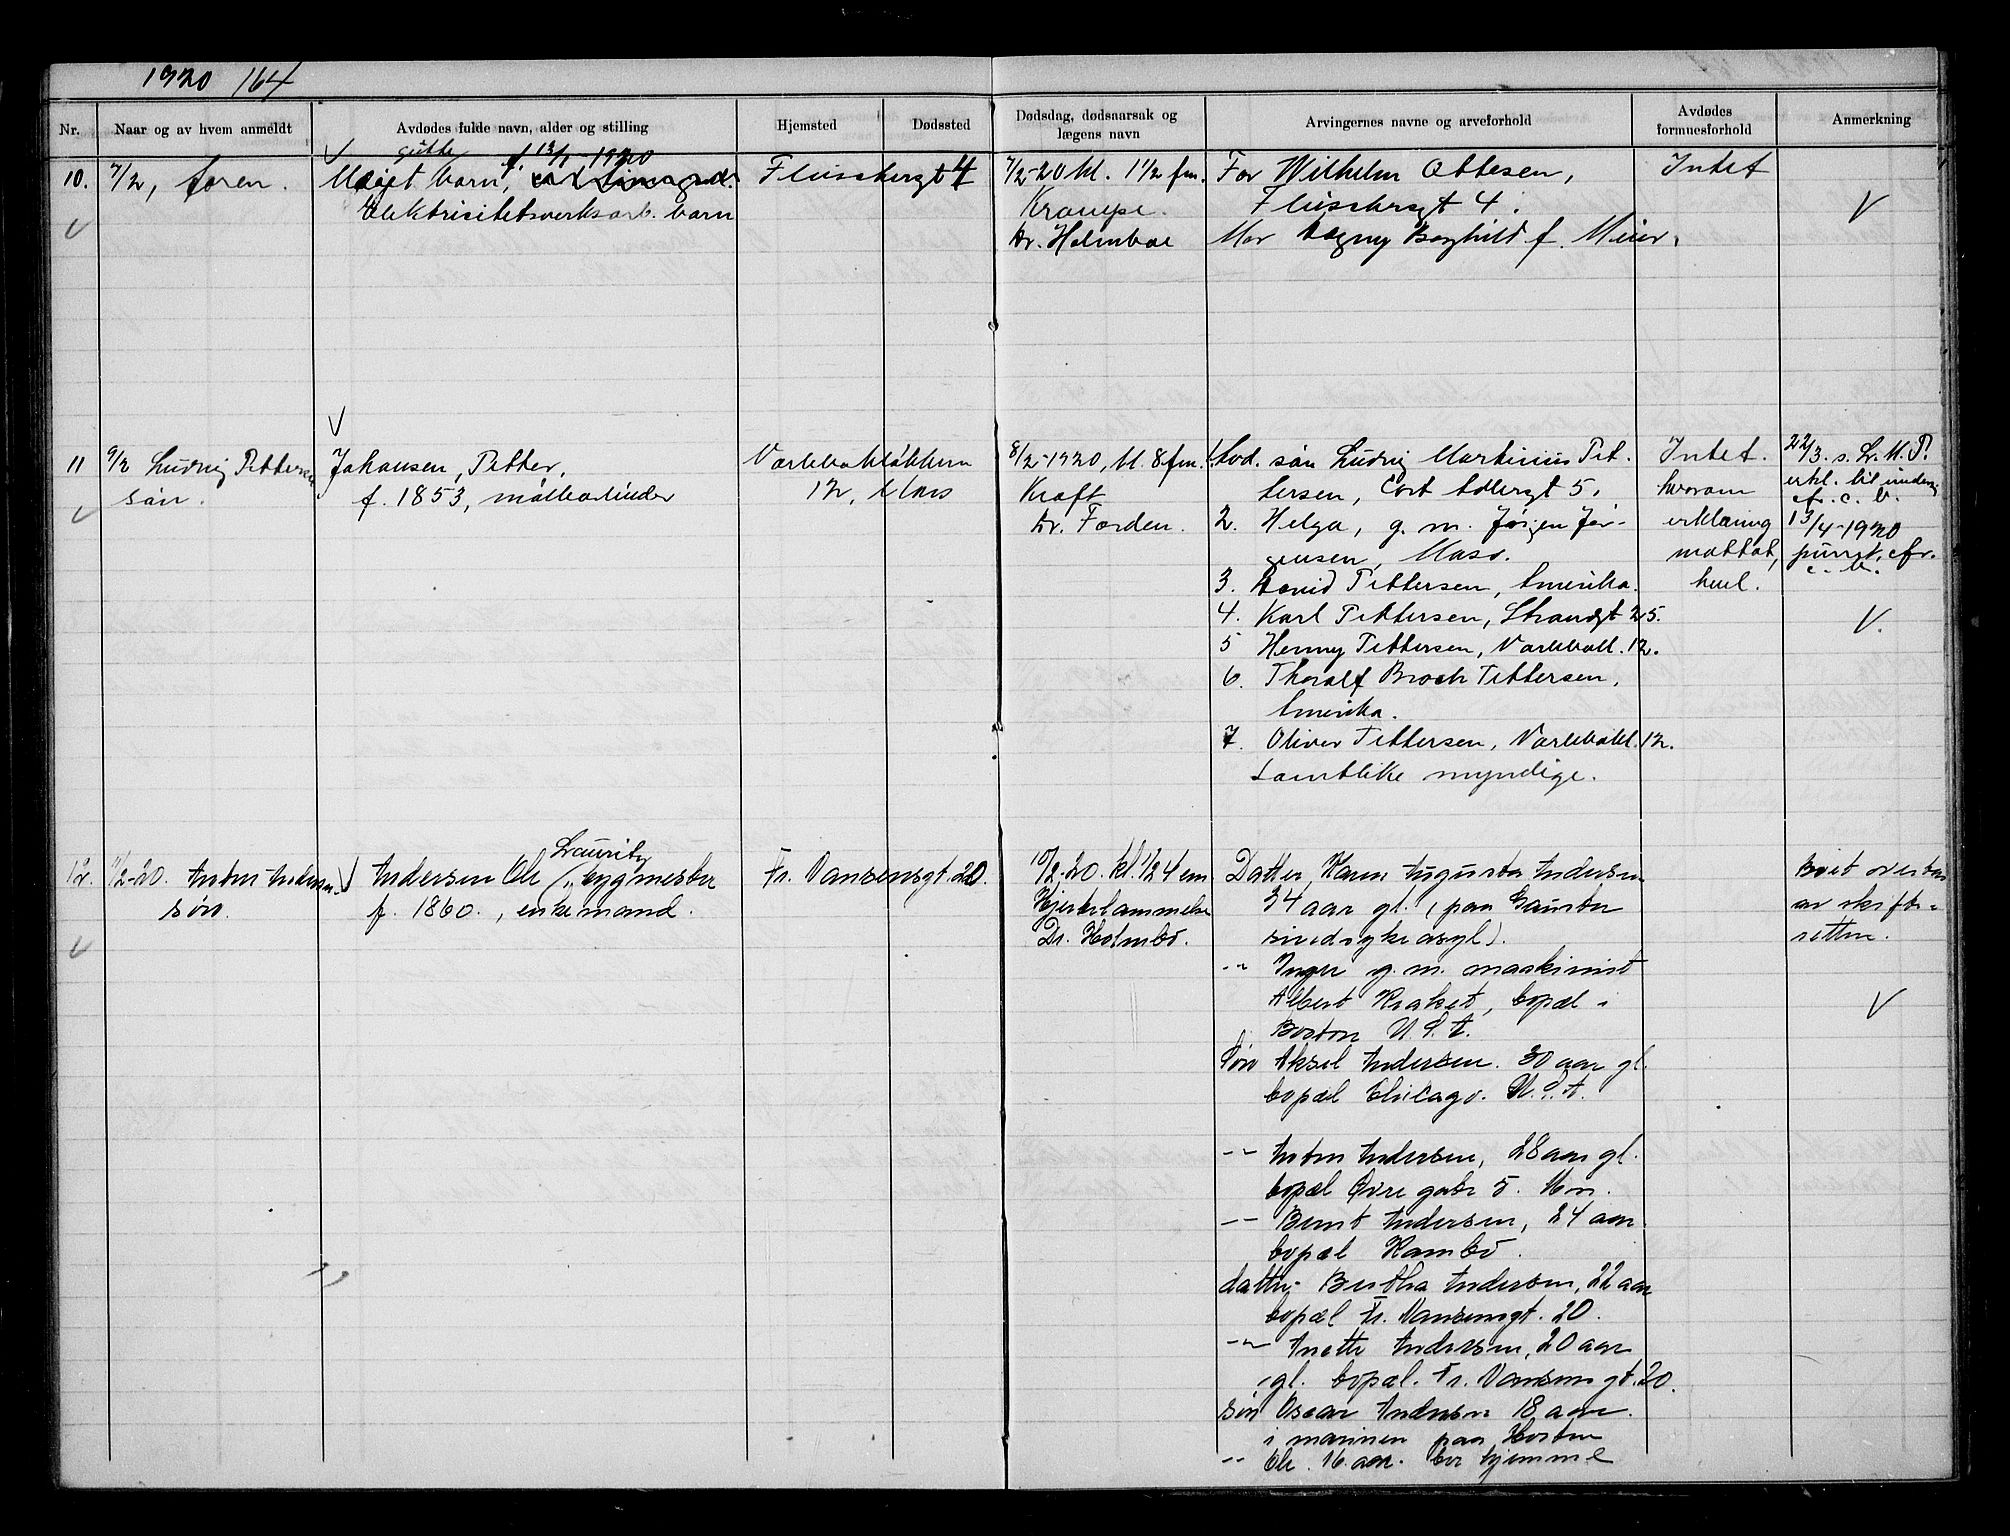 1920 164
Nr.
Naar og av hvem anmeldt
Avdødes fulde navn, alder og stilling
Hjemsted
Dødssted
Dødsdag, dødsaarsak og
lægens navn
Arvingernes navne og arveforhold
Avdødes
formuesforhold
Anmerkning
10.
7/2, faren.
gutte f. 13/1-1920
Udøpt barn,
Elektricitetsverksarb. barn
4
7/2-20 kl. 1 1/2 fm.
Krampe.
Dr. Holmboe
Far Wilhelm Ottesen,
4.
Mor Dagny Borghild f. Meier.
Intet
11
9/2 Ludvig Pettersen
søn.
Johansen, Petter,
f. 1853, målbarbinder
Varlebakløkken
12, Mass
8/2-1920, kl. 8 fm.
Kræft
Dr. Farden.
1. søn Ludvig Martinius Pet-
tersen, Cort Adlersgt 5.
2. Helga, g. m. Jørgen Jør-
gensen, Mass.
3. David Pettersen, Amerika.
4. Karl Pettersen, Strandgt 25.
5 Henny Pettersen, Varlebakl. 12.
6. Thoralf Broch Pettersen,
Amerika.
7. Oliver Pettersen, Varlebakl. 12.
Samtlike myndige.
Intet.
hvorom
erklæring
mottat,
22/3. s. L. M. P.
erkl. til
13/4-1920
12.
11/2-20. Anton Andersen
søn.
Lauritz
Andersen Ole bygmester
f. 1860., enkemand.
Fr. Nansensgt. 20.
10/2-20. kl. 1/2 4 em
Hjertelammelse
Dr. Holmbo.
Datter Karen Augusta Andersen
34 aar gl. (paa Gaustad
sindsykeasyl).
-"- Inger g. m. maskinist
Albert Kraket, bopæl i
Boston U. S. A.
Søn Aksel Andersen. 30 aar gl.
bopæl Chicago. U. S. A.
-"- Anton Andersen, 28 aar gl.
bopæl Øvre gate 5. Mss.
-"- Bernt Andersen, 24 aar
bopæl Kambo.
datter Bertha Andersen, 22 aar
bopæl Fr. Nansensgt. 20.
-"- Anette Andersen, 20 aar
gl. bopæl. Fr. Nansensgt. 20.
søn Oscar Andersen 18 aar.
i marinen paa Horten
-"- Ole 16 aar. bor hjemme
Boet overtas
av skifte-
retten.